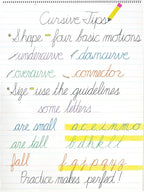 Cursive Tips
• Shape - four basic motions
undercurve downcurve
overcurve connector
• Size - use the guidelines
some letters
are small a c e i m n o
are tall b d h k l t
fall f g j p q y z
Practice makes perfect!